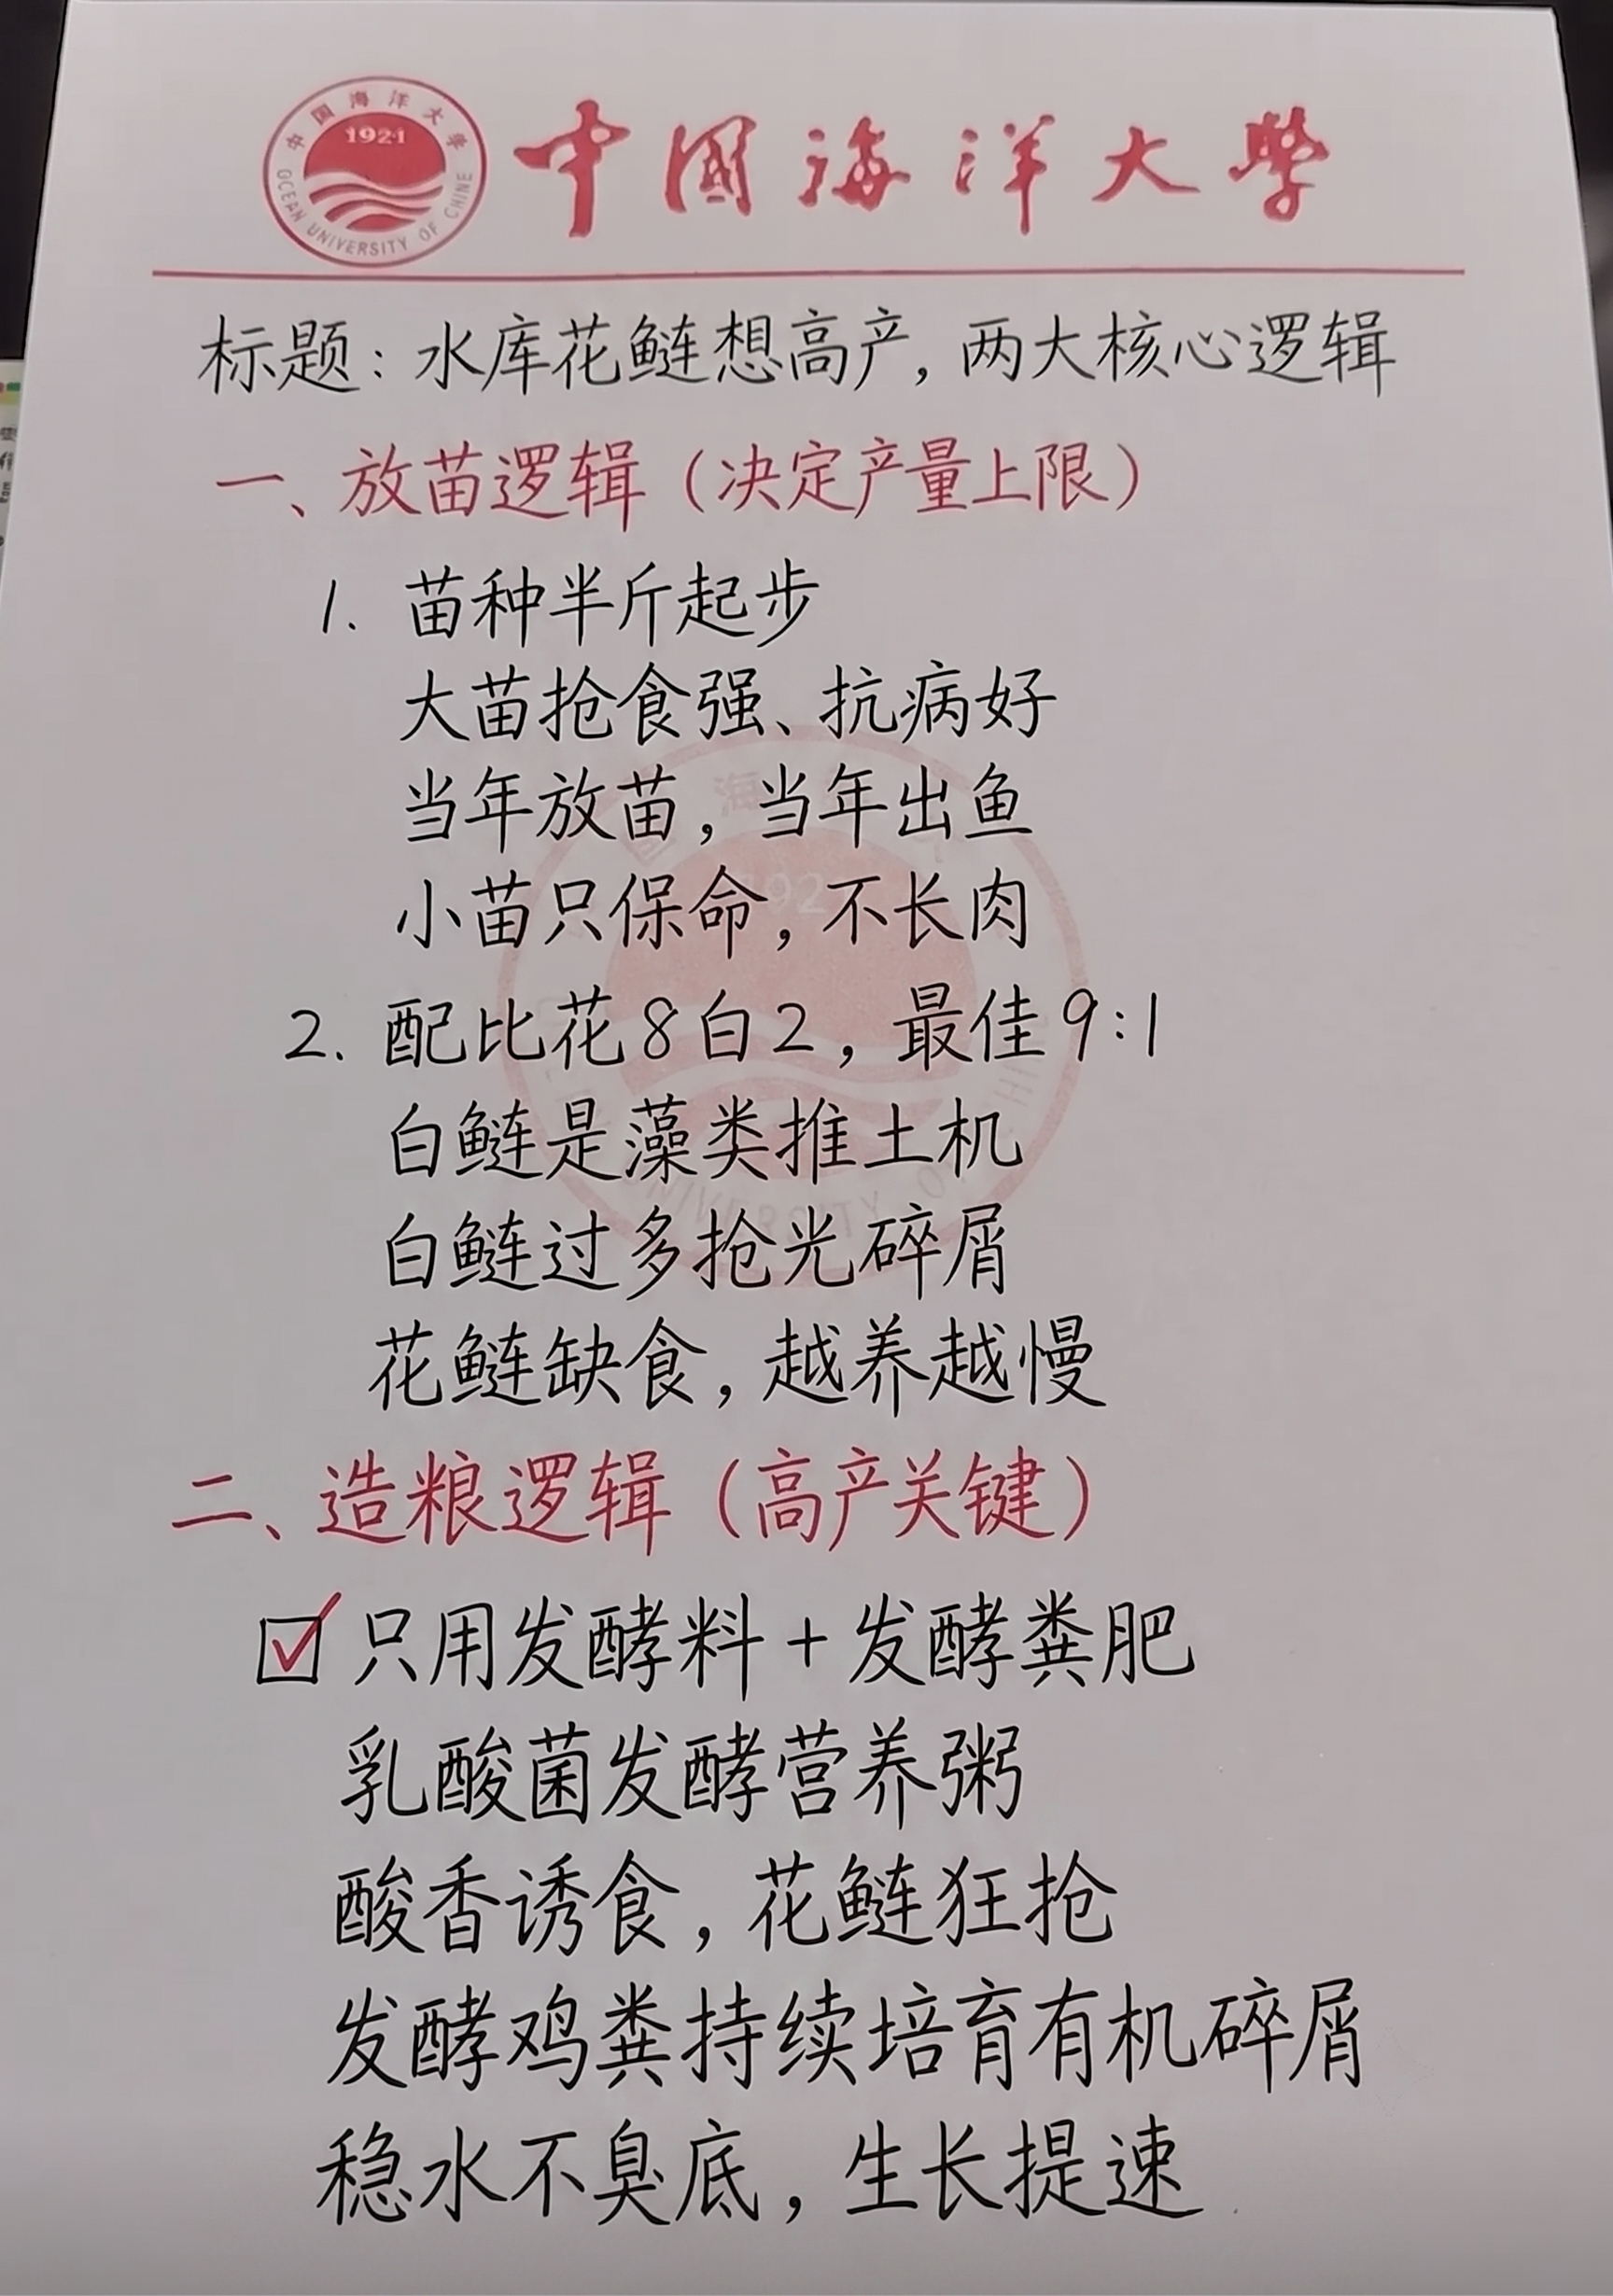 中国海洋大学
1924
OCEAN UNIVERSITY OF CHINE
中國海洋大學
标题：水库花鲢想高产，两大核心逻辑
一、放苗逻辑（决定产量上限）
1. 苗种半斤起步
大苗抢食强、抗病好
当年放苗，当年出鱼
小苗只保命，不长肉
2. 配比花8白2，最佳9:1
白鲢是藻类推土机
白鲢过多抢光碎屑
花鲢缺食，越养越慢
二、造粮逻辑（高产关键）
只用发酵料+发酵粪肥
乳酸菌发酵营养粥
酸香诱食，花鲢狂抢
发酵鸡粪持续培育有机碎屑
稳水不臭底，生长提速